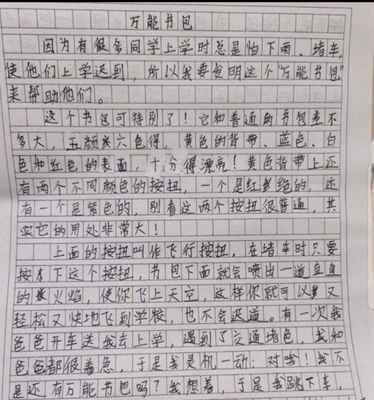 万能书包
因为有很多同学上学时总是怕下雨、堵车,
使他们上学迟到,所以我要发明这个"万能书包"
来帮助他们。
这个书包可特别了!它和普通的书包差不
多大,五颜六色得,黄色的背带、蓝色、白
色和红色的表面,十分得漂亮!黄色背带上还
有两个不同颜色的按扭,一个是红色的,还
有一个是紫色的,别看这两个按扭很普通,其
实它的用处非常大!
上面的按扭叫作飞行按扭,在堵车时只要
按下这个按扭,书包下面就会喷出一道直直
的火焰,使你飞上天空,这样你就可以又
轻松又快地飞到学校,也不会迟道。有一次我
爸爸开车送我去上学,遇到了交通堵色,我和
爸爸都很着急,于是我灵机一动:对哦!我不
是还有万能书包吗?我想着,于是我跳下车,